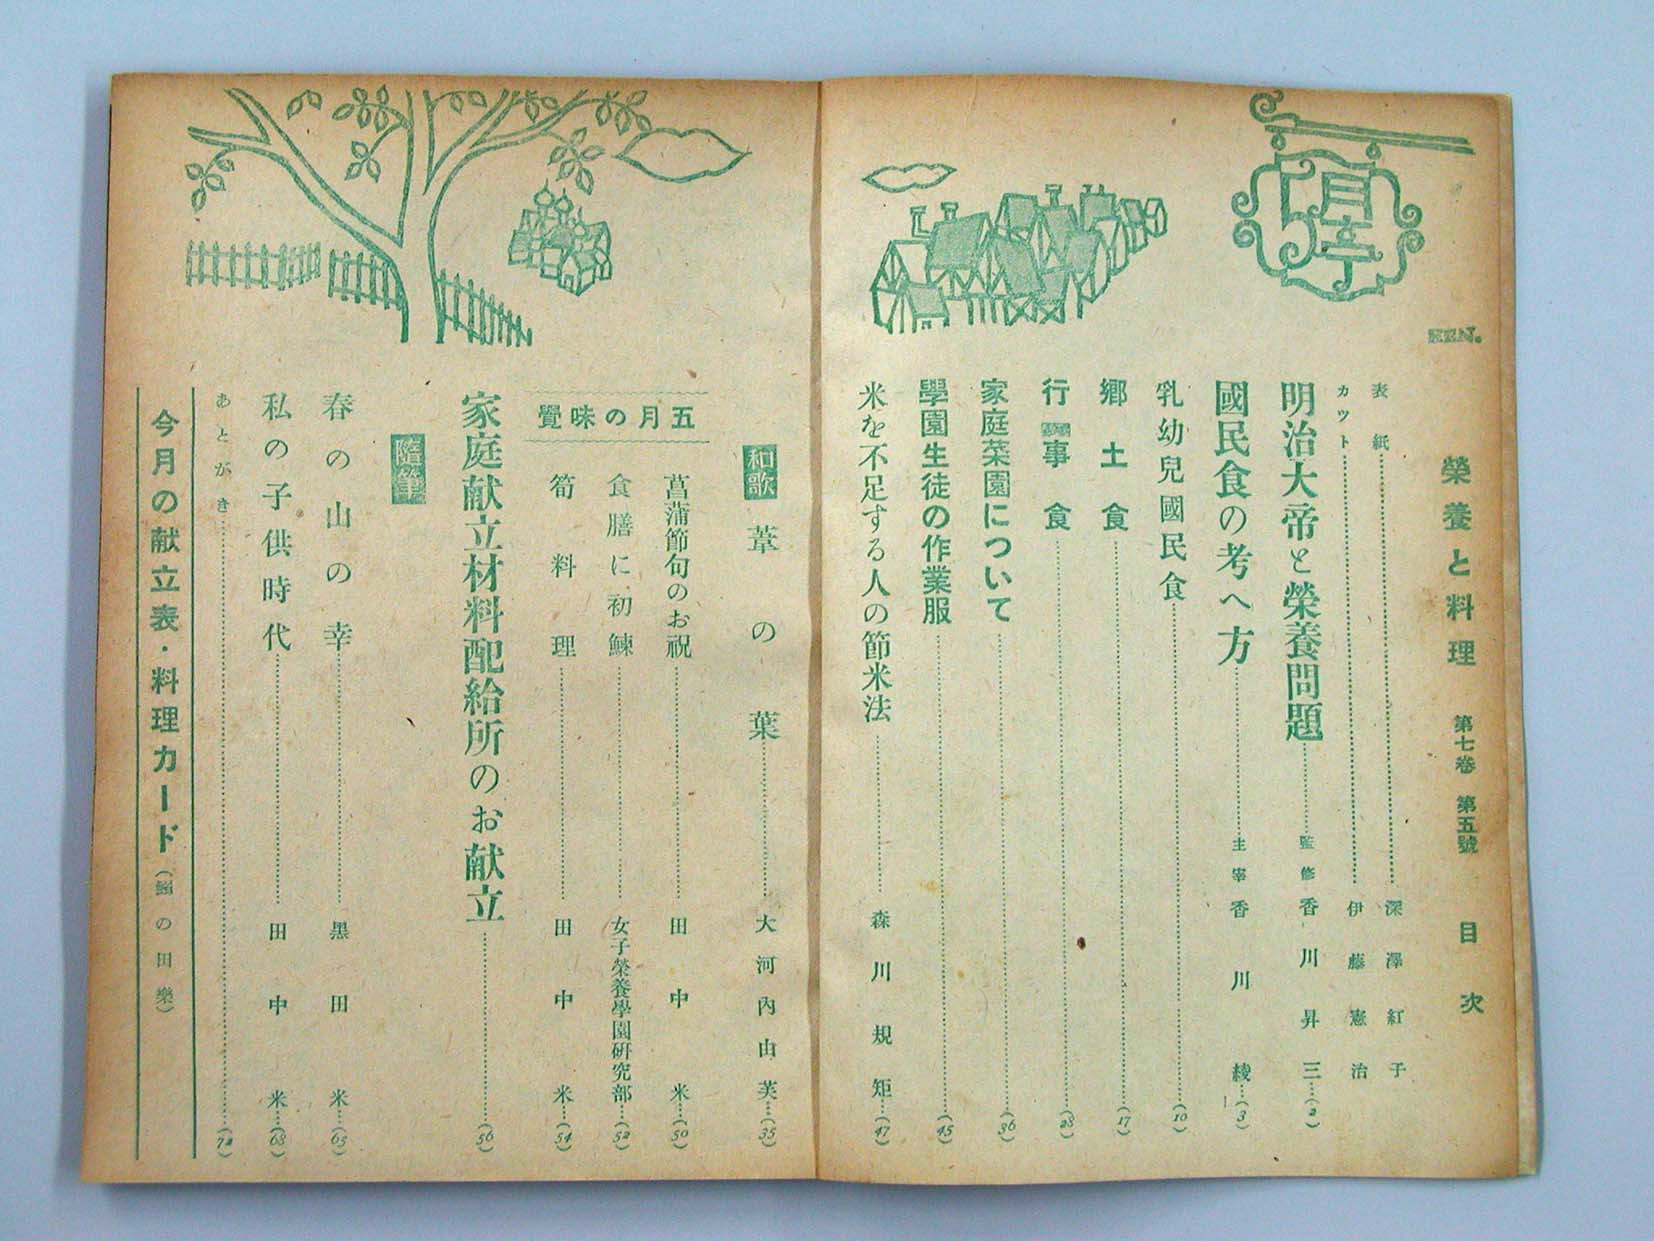 5月号
KEN.
榮養と料理 第七卷 第五號 目次
表紙 深澤紅子
カット 伊藤憲治
明治大帝と榮養問題 監修 香川昇三 (2)
國民食の考へ方 主宰 香川綾 (3)
乳幼兒國民食 (10)
鄉土食 (17)
行事食 (28)
家庭菜園について (36)
學園生徒の作業服 (45)
米を不足する人の節米法 森川規矩 (47)
和歌 葦の葉 大河內由芙 (35)
五月の味覺
菖蒲節句のお祝 田中米 (50)
食膳に初鰊 女子榮養學園硏究部 (52)
筍料理 田中米 (54)
家庭献立材料配給所のお献立 (56)
隨筆
春の山の幸 黑田米 (65)
私の子供時代 田中米 (68)
あとがき (72)
今月の献立表・料理カード(の田樂)